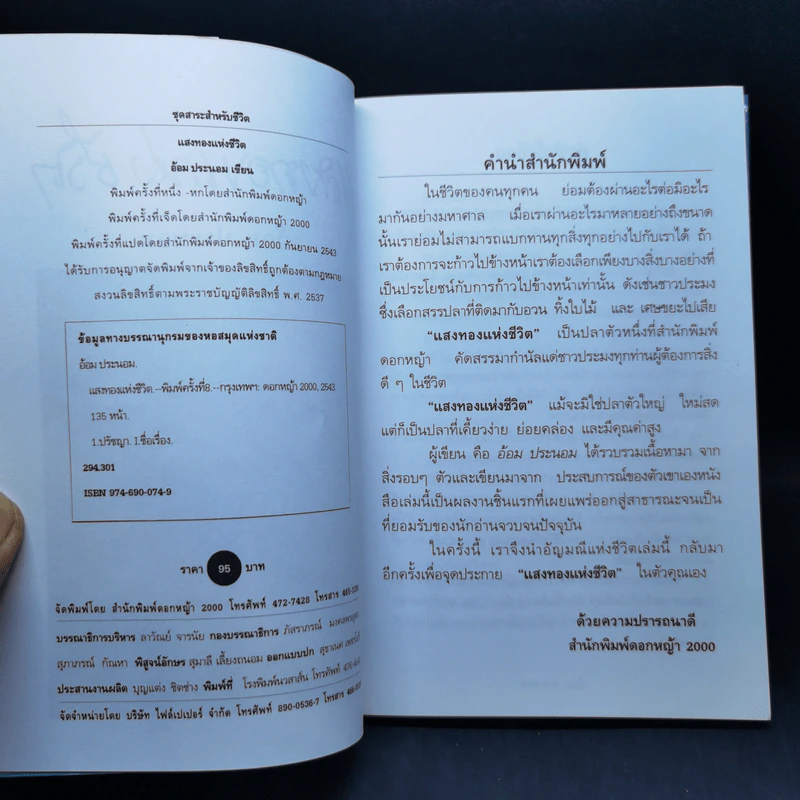 ชุดสาระสำหรับชีวิต
แสงทองแห่งชีวิต
อ้อม ประนอม เขียน
พิมพ์ครั้งที่หนึ่ง -หกโดยสำนักพิมพ์ดอกหญ้า
พิมพ์ครั้งที่เจ็ดโดยสำนักพิมพ์ดอกหญ้า 2000
พิมพ์ครั้งที่แปดโดยสำนักพิมพ์ดอกหญ้า 2000 กันยายน 2543
ได้รับการอนุญาตจัดพิมพ์จากเจ้าของลิขสิทธิ์ถูกต้องตามกฎหมาย
สงวนลิขสิทธิ์ตามพระราชบัญญัติลิขสิทธิ์ พ.ศ. 2537
ข้อมูลทางบรรณานุกรมของหอสมุดแห่งชาติ
อ้อม ประนอม.
แสงทองแห่งชีวิต.--พิมพ์ครั้งที่8.--กรุงเทพฯ: ดอกหญ้า 2000, 2543.
135 หน้า.
1.ปรัชญา. I.ชื่อเรื่อง.
294.301
ISBN 974-690-074-9
ราคา 95 บาท
จัดพิมพ์โดย สำนักพิมพ์ดอกหญ้า 2000 โทรศัพท์ 472-7428 โทรสาร
บรรณาธิการบริหาร ลาวัณย์ จารนัย กองบรรณาธิการ ภัสราภรณ์
สุภาภรณ์ กัณหา พิสูจน์อักษร สุมาลี เลี้ยงถนอม ออกแบบปก
ประสานงานผลิต บุญแต่ง ชิดช่าง พิมพ์ที่ โรงพิมพ์นวสาส์น โทรศัพท์
จัดจำหน่ายโดย บริษัท ไฟล์เปเปอร์ จำกัด โทรศัพท์ 890-0536-7 โทรสาร
คำนำสำนักพิมพ์
ในชีวิตของคนทุกคน ย่อมต้องผ่านอะไรต่อมิอะไร
มากันอย่างมหาศาล เมื่อเราผ่านอะไรมาหลายอย่างถึงขนาด
นั้นเราย่อมไม่สามารถแบกทานทุกสิ่งทุกอย่างไปกับเราได้ ถ้า
เราต้องการจะก้าวไปข้างหน้าเราต้องเลือกเพียงบางสิ่งบางอย่างที่
เป็นประโยชน์กับการก้าวไปข้างหน้าเท่านั้น ดังเช่นชาวประมง
ซึ่งเลือกสรรปลาที่ติดมากับอวน ทิ้งใบไม้ และ เศษขยะไปเสีย
“แสงทองแห่งชีวิต” เป็นปลาตัวหนึ่งที่สำนักพิมพ์
ดอกหญ้า คัดสรรมากำนัลแด่ชาวประมงทุกท่านผู้ต้องการสิ่ง
ดี ๆ ในชีวิต
“แสงทองแห่งชีวิต” แม้จะมิใช่ปลาตัวใหญ่ ใหม่สด
แต่ก็เป็นปลาที่เคี้ยวง่าย ย่อยคล่อง และมีคุณค่าสูง
ผู้เขียน คือ อ้อม ประนอม ได้รวบรวมเนื้อหามา จาก
สิ่งรอบๆ ตัวและเขียนมาจาก ประสบการณ์ของตัวเขาเองหนัง
สือเล่มนี้เป็นผลงานชิ้นแรกที่เผยแพร่ออกสู่สาธารณะจนเป็น
ที่ยอมรับของนักอ่านจวบจนปัจจุบัน
ในครั้งนี้ เราจึงนำอัญมณีแห่งชีวิตเล่มนี้ กลับมา
อีกครั้งเพื่อจุดประกาย “แสงทองแห่งชีวิต” ในตัวคุณเอง
ด้วยความปรารถนาดี
สำนักพิมพ์ดอกหญ้า 2000